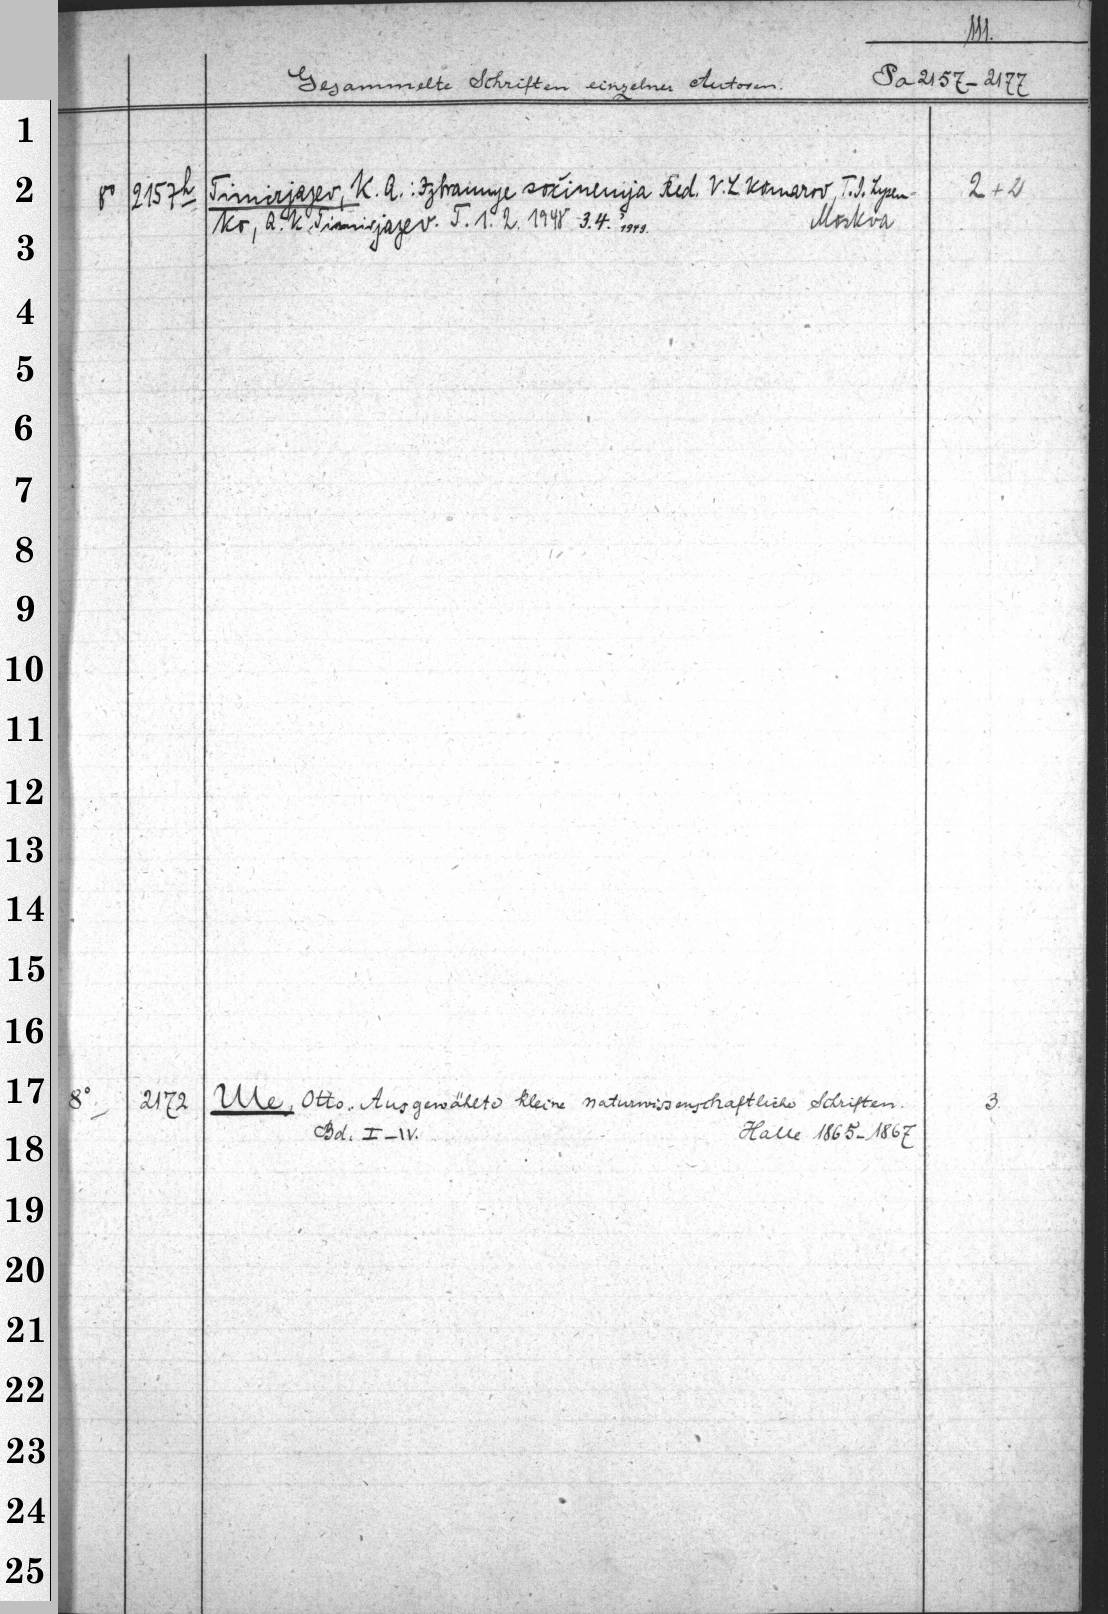 111.
Gesammelte Schriften einzelner Autoren.
Pa 2157-2177
1
2
8° 2157h Timirjazev, K. A.: Izbrannye sočinenija Red. V. L. Komarov, T. D. Lysen- 2 + 2
ko, A. K. Timirjazev. T. 1. 2. 1948 3.4. 1949. Moskva
3
4
5
6
7
8
9
10
11
12
13
14
15
16
17
8° 2172 Ule, Otto. Ausgewählte kleine naturwissenschaftliche Schriften. 3
Bd. I-IV. Halle 1865-1867
18
19
20
21
22
23
24
25